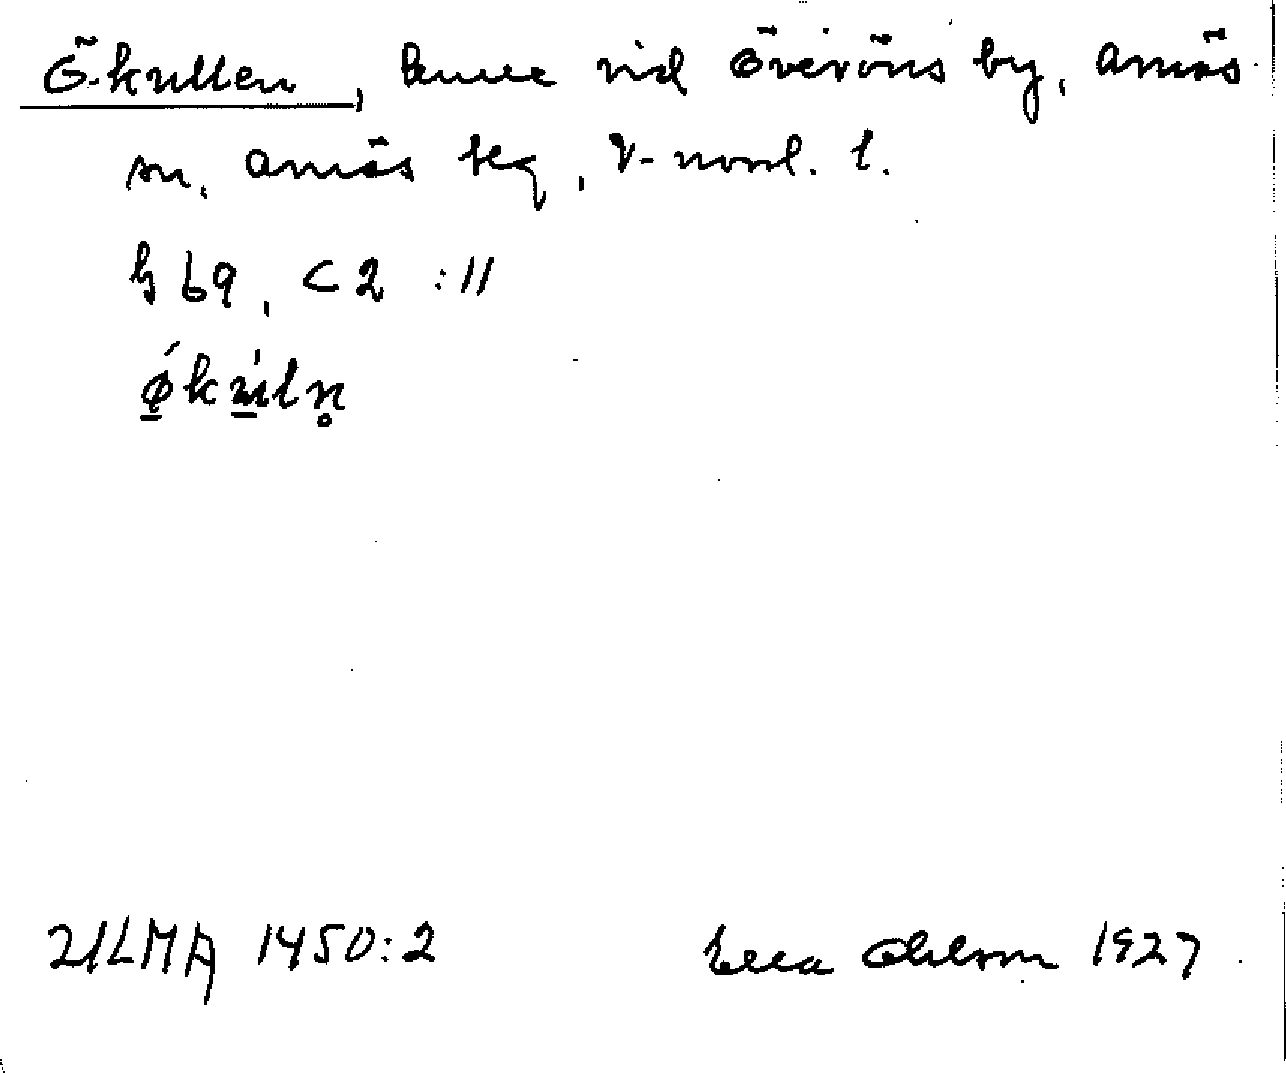 Ö-kullen, kulle vid Överöns by, Arnäs
sn, Arnäs tg, V-norrl. l.
h 69, C 2 :11
ǿkúln̥
ULMA 1450:2 Ella Ohlson 1927